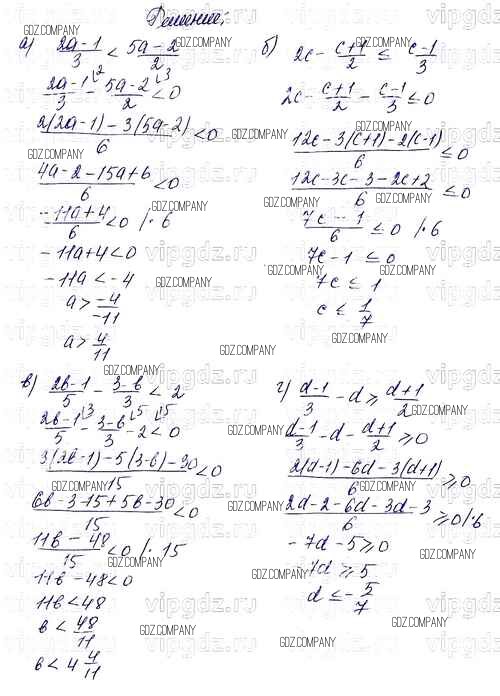 Решение:
а) (2a-1)/3 < (5a-2)/2
(2a-1)/3 - (5a-2)/2 < 0
(2(2a-1)-3(5a-2))/6 < 0
(4a-2-15a+6)/6 < 0
(-11a+4)/6 < 0 /·6
-11a+4<0
-11a<-4
a > -4/-11
a > 4/11
б) 2c - (c+1)/2 ≤ (c-1)/3
2c - (c+1)/2 - (c-1)/3 ≤ 0
(12c-3(c+1)-2(c-1))/6 ≤ 0
(12c-3c-3-2c+2)/6 ≤ 0
(7c-1)/6 ≤ 0 /·6
7c-1 ≤ 0
7c ≤ 1
c ≤ 1/7
в) (2в-1)/5 - (3-в)/3 < 2
(2в-1)/5 - (3-в)/3 - 2 < 0
(3(2в-1)-5(3-в)-30)/15 < 0
(6в-3-15+5в-30)/15 < 0
(11в-48)/15 < 0 /·15
11в-48<0
11в<48
в < 48/11
в < 4 4/11
г) (d-1)/3 - d ≥ (d+1)/2
(d-1)/3 - d - (d+1)/2 ≥ 0
(2(d-1)-6d-3(d+1))/6 ≥ 0
(2d-2-6d-3d-3)/6 ≥ 0 /·6
-7d-5≥0
-7d ≥ 5
d ≤ -5/7
GDZ.COMPANY
vipgdz.ru